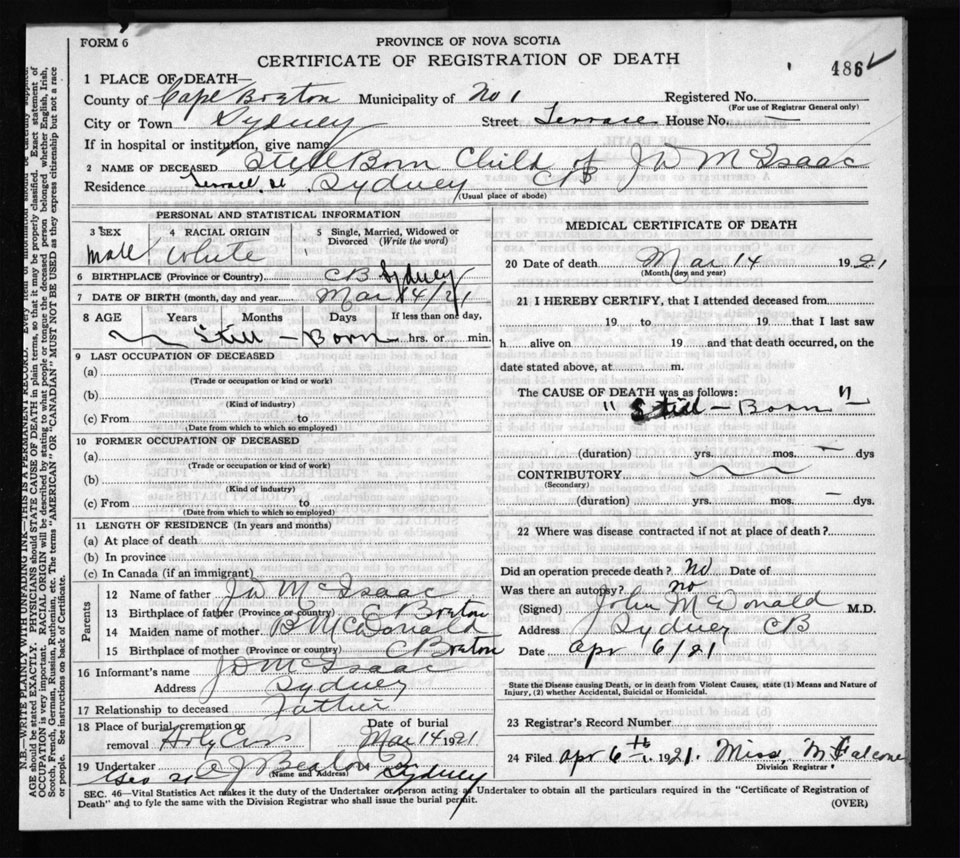 FORM 6
PROVINCE OF NOVA SCOTIA
CERTIFICATE OF REGISTRATION OF DEATH
486
1 PLACE OF DEATH—
County of Cape Breton Municipality of No 1 Registered No.
(For use of Registrar General only)
City or Town Sydney Street Terrace House No. —
If in hospital or institution, give name
2 NAME OF DECEASED Still Born Child of J D McIsaac
Residence Terrace st. Sydney CB
(Usual place of abode)
PERSONAL AND STATISTICAL INFORMATION
3 SEX 4 RACIAL ORIGIN 5 Single, Married, Widowed or
Divorced (Write the word)
Male White
6 BIRTHPLACE (Province or Country) CB Sydney
7 DATE OF BIRTH (month, day and year) Mar 14/21
8 AGE Years Months Days If less than one day,
Still – Born hrs. or min.
9 LAST OCCUPATION OF DECEASED
(a)
(Trade or occupation or kind or work)
(b)
(Kind of industry)
(c) From to
(Date from which to which so employed)
10 FORMER OCCUPATION OF DECEASED
(a)
(Trade or occupation or kind of work)
(b)
(Kind of industry)
(c) From to
(Date from which to which so employed)
11 LENGTH OF RESIDENCE (In years and months)
(a) At place of death
(b) In province
(c) In Canada (if an immigrant)
Parents
12 Name of father J D McIsaac
13 Birthplace of father (Province or country) C Breton
14 Maiden name of mother B McDonald
15 Birthplace of mother (Province or country) C Breton
16 Informant's name J D McIsaac
Address Sydney
17 Relationship to deceased Father
18 Place of burial, cremation or Date of burial
removal Holy Cross Mar 14 1921
19 Undertaker A J Beaton Sydney
(Name and Address)
MEDICAL CERTIFICATE OF DEATH
20 Date of death Mar 14 1921
(Month day, and year)
21 I HEREBY CERTIFY, that I attended deceased from
19 to 19 that I last saw
h alive on 19 and that death occurred, on the
date stated above, at m.
The CAUSE OF DEATH was as follows:
" Still – Born "
(duration) yrs. mos. — dys
CONTRIBUTORY
(Secondary)
(duration) yrs. mos. — dys.
22 Where was disease contracted if not at place of death?
Did an operation precede death? No Date of
Was there an autopsy? no
(Signed) John McDonald M.D.
Address Sydney CB
Date Apr 6/21
State the Disease causing Death, or in death from Violent Causes, state (1) Means and Nature of
Injury, (2) whether Accidental, Suicidal or Homicidal.
23 Registrar's Record Number
24 Filed Apr 6th 1921. Miss M
Division Registrar
SEC. 46—Vital Statistics Act makes it the duty of the Undertaker or person acting as Undertaker to obtain all the particulars required in the "Certificate of Registration of
Death" and to fyle the same with the Division Registrar who shall issue the burial permit.
(OVER)
N.B.—WRITE PLAINLY WITH UNFADING INK—THIS IS A PERMANENT RECORD. Every item of information should be carefully supplied.
AGE should be stated EXACTLY. PHYSICIANS should STATE CAUSE OF DEATH in plain terms, so that it may be properly classified. Exact statement of
OCCUPATION is very important. RACIAL ORIGIN will be described by stating to what people or tongue the deceased person belonged whether English, Irish,
Scotch, French, German, Russian, Ruthenian, etc. The terms "AMERICAN" OR "CANADIAN" MUST NOT BE USED as they express citizenship but not a race
or people. See instructions on back of Certificate.